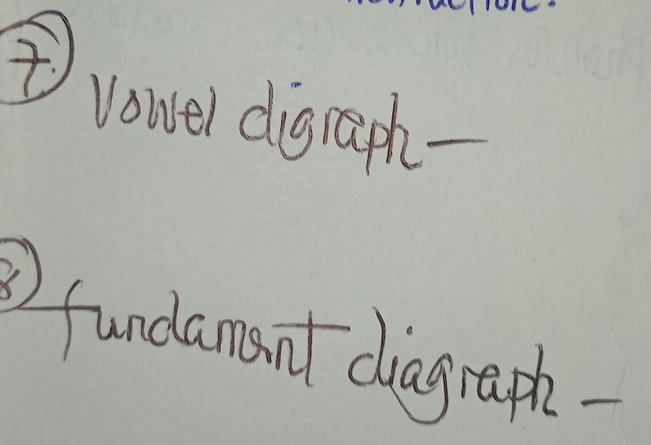 7. Vowel digraph —
8 fundament diagraph —